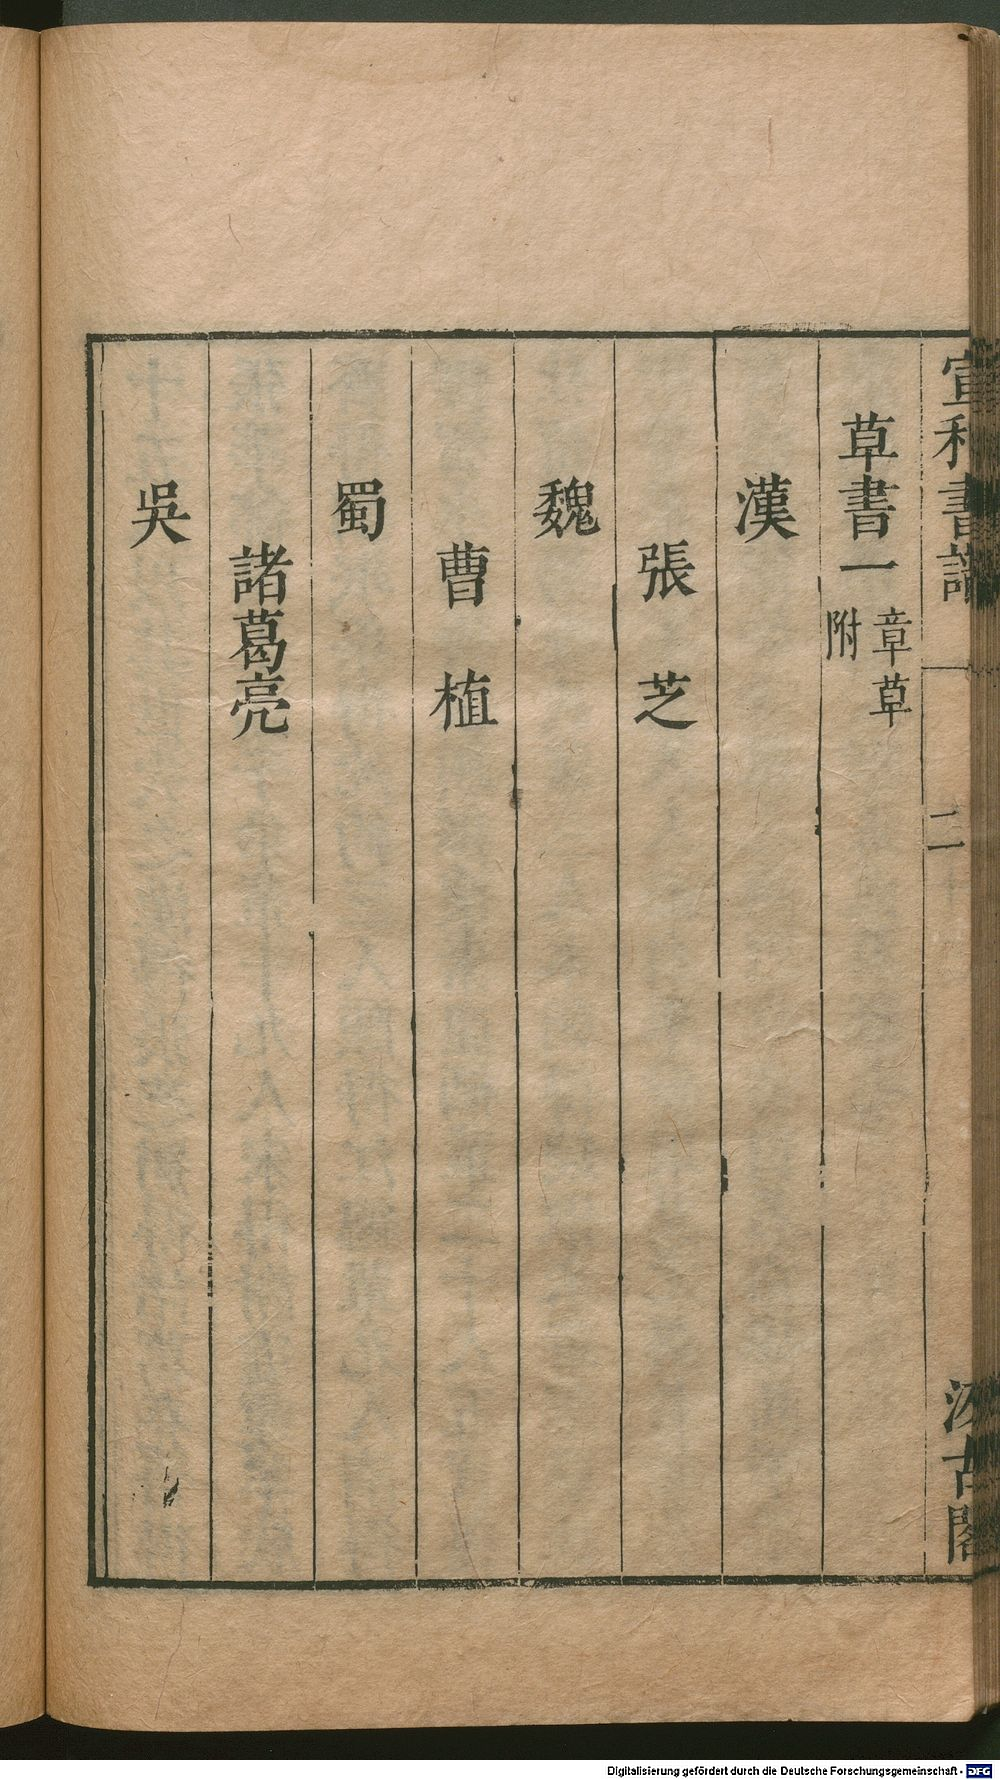 宣和書譜 二 汲古閣
草書一 章草附
漢
張芝
魏
曹植
蜀
諸葛亮
吳
Digitalisierung gefördert durch die Deutsche Forschungsgemeinschaft - DFG